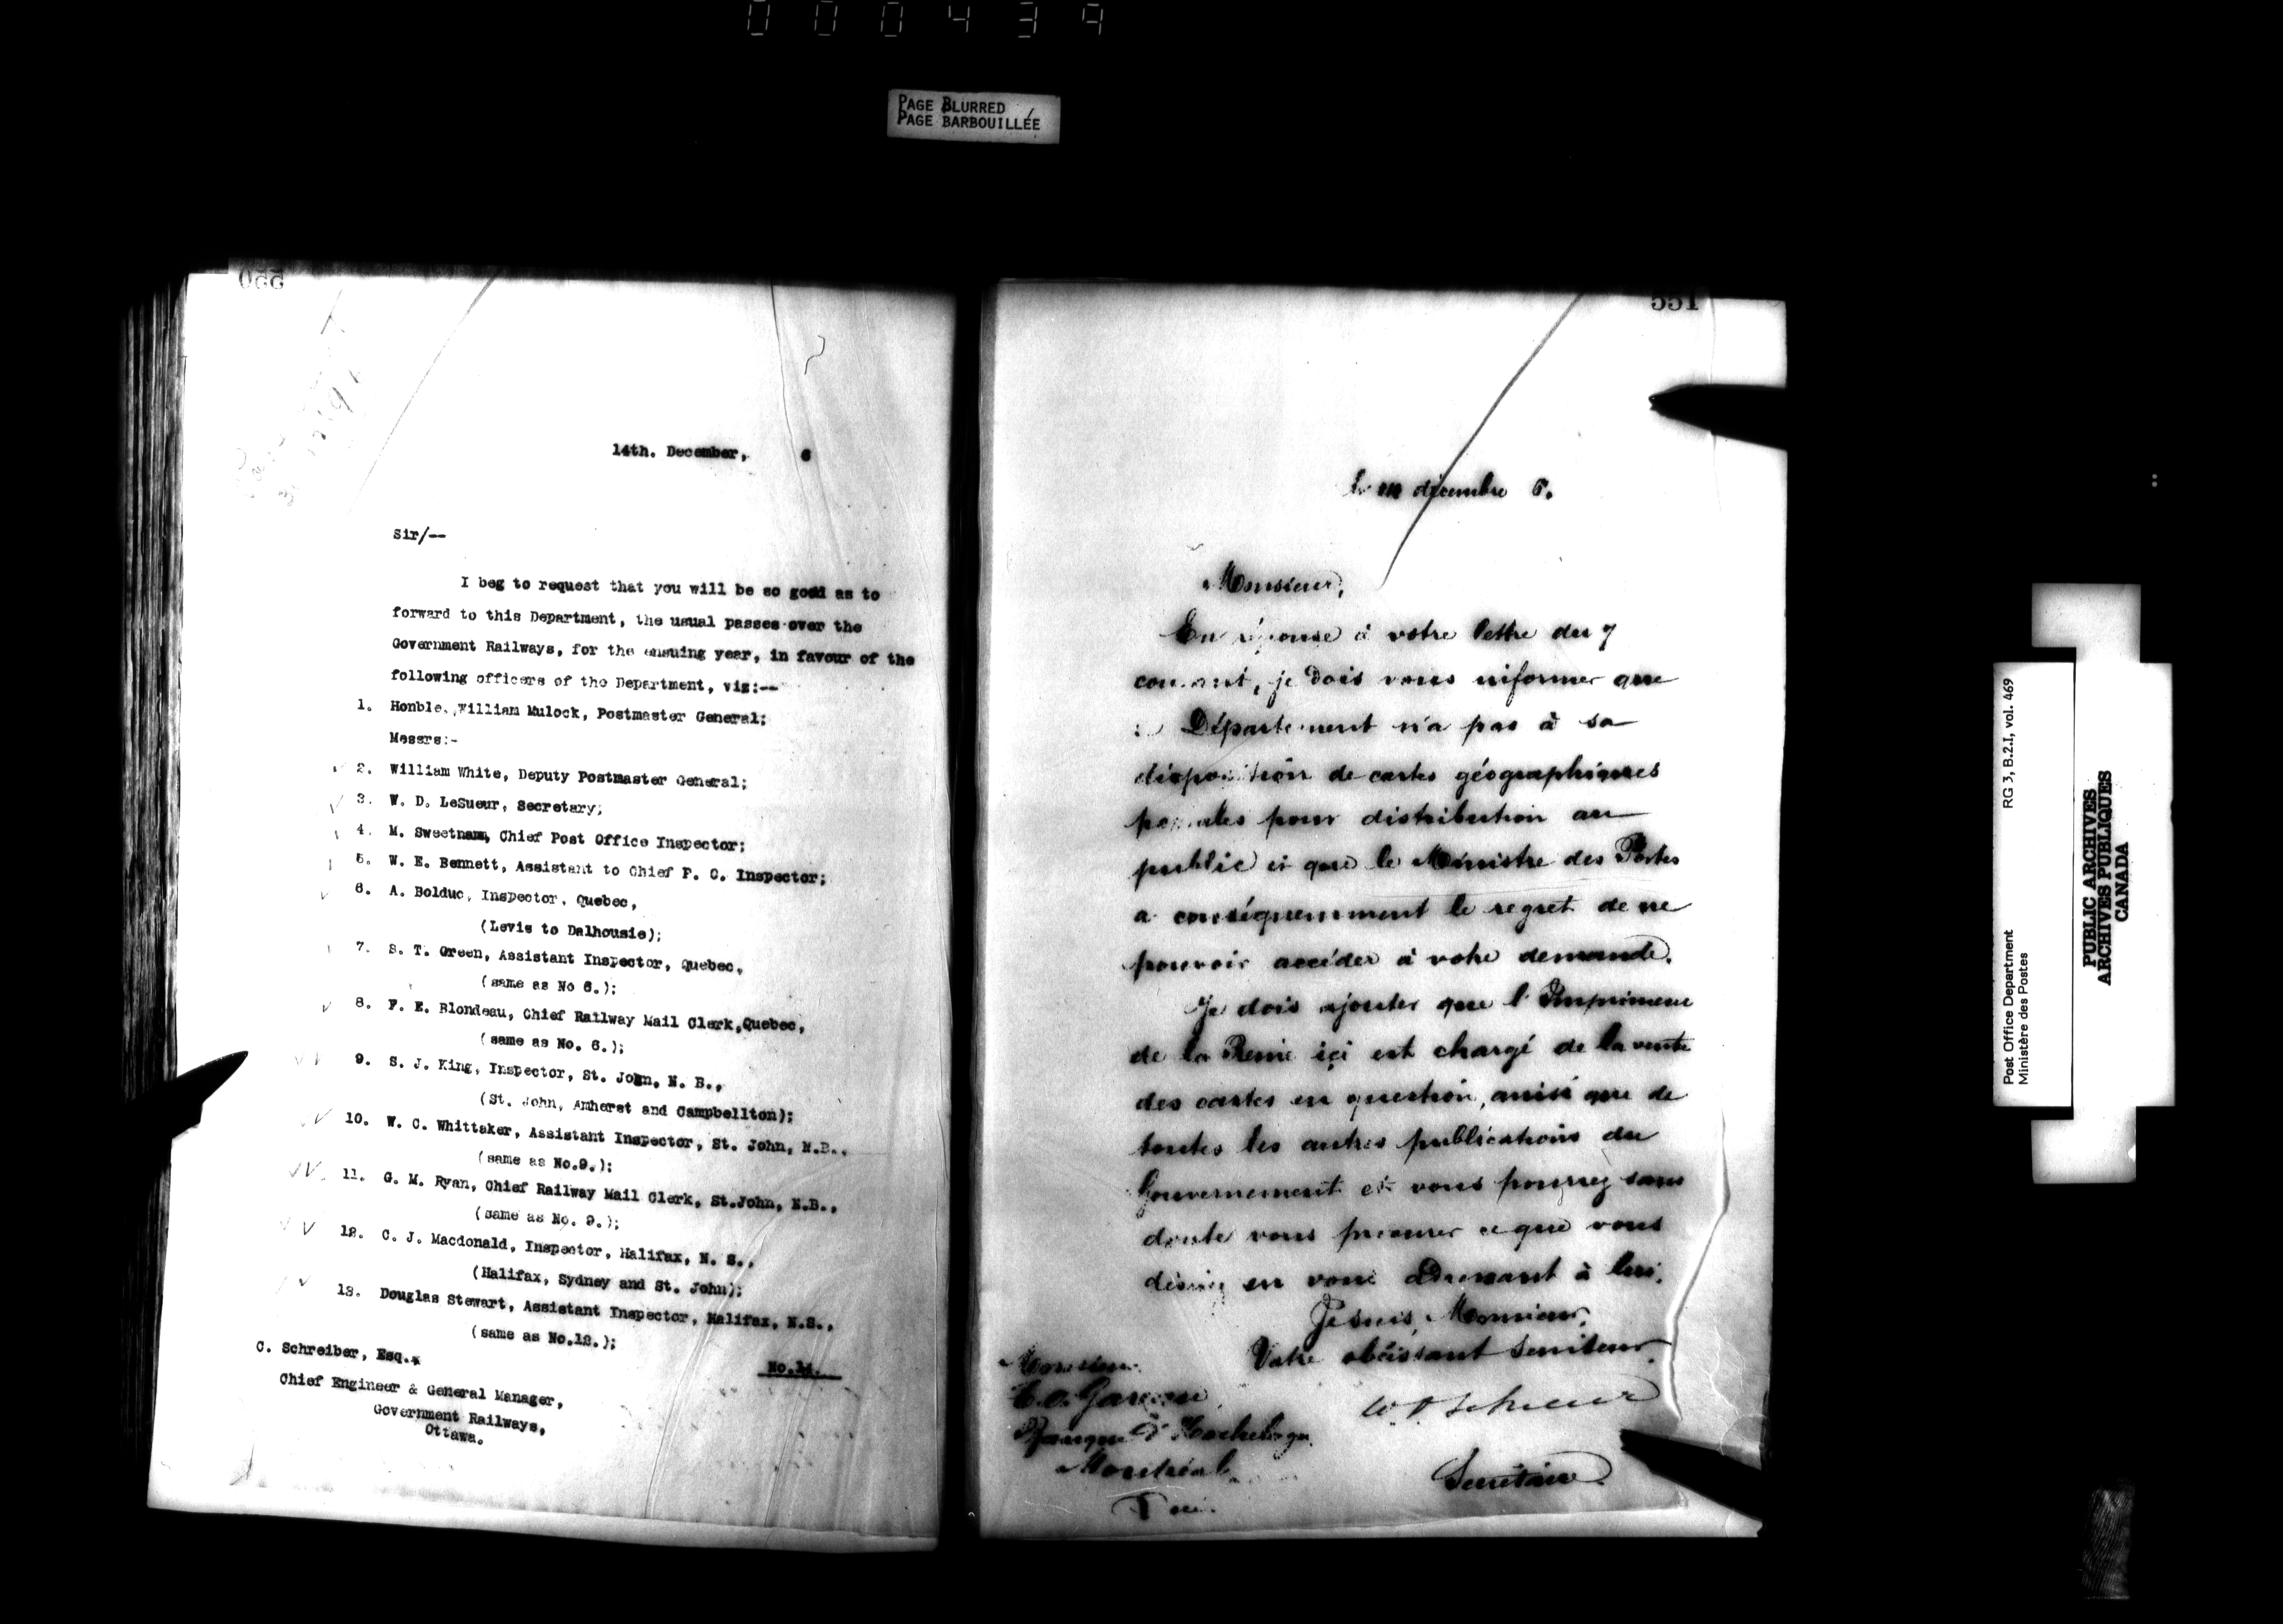 000439
PAGE BLURRED
PAGE BARBOUILLÉE
550
14th. December, 6
Sir/--
I beg to request that you will be so good as to
forward to this Department, the usual passes over the
Government Railways, for the ensuing year, in favour of the
following officers of the Department, viz:--
1. Honble. William Mulock, Postmaster General;
Messrs:-
2. William White, Deputy Postmaster General;
3. W. D. LeSueur, Secretary;
4. M. Sweetnam, Chief Post Office Inspector;
5. W. E. Bennett, Assistant to Chief P. O. Inspector;
6. A. Bolduc, Inspector, Quebec,
(Levis to Dalhousie);
7. S. T. Green, Assistant Inspector, Quebec,
(same as No 6.);
8. F. E. Blondeau, Chief Railway Mail Clerk, Quebec,
(same as No. 6.);
9. S. J. King, Inspector, St. John, N. B.,
(St. John, Amherst and Campbellton);
10. W. C. Whittaker, Assistant Inspector, St. John, N.B.,
(same as No.9.);
11. G. M. Ryan, Chief Railway Mail Clerk, St.John, N.B.,
(same as No. 9.);
12. C. J. Macdonald, Inspector, Halifax, N. S.,
(Halifax, Sydney and St. John);
13. Douglas Stewart, Assistant Inspector, Halifax, N.S.,
(same as No.12.);
No.14.
C. Schreiber, Esq.,
Chief Engineer & General Manager,
Government Railways,
Ottawa.
551
le décembre 6.
Monsieur,
En réponse à votre lettre du 7
courant, je dois vous informer que
Département n'a pas à sa
disposition de cartes géographiques
postales pour distribution au
public et que le Ministre des Postes
a conséquemment le regret de ne
pouvoir accéder à votre demande.
Je dois ajouter que l'Imprimeur
de la Reine içi est chargé de la vente
des cartes en question, ainsi que de
toutes les autres publications du
Gouvernement et vous pourrez sans
doute vous procurer ce que vous
désirez en vous adressant à lui.
Je suis, Monsieur,
Votre obéissant serviteur,
W D LeSueur
Secrétaire
Monsieur
Banque d'Hochelaga
Montréal
Post Office Department
Ministère des Postes
RG 3, B.2.I, vol. 469
PUBLIC ARCHIVES
ARCHIVES PUBLIQUES
CANADA